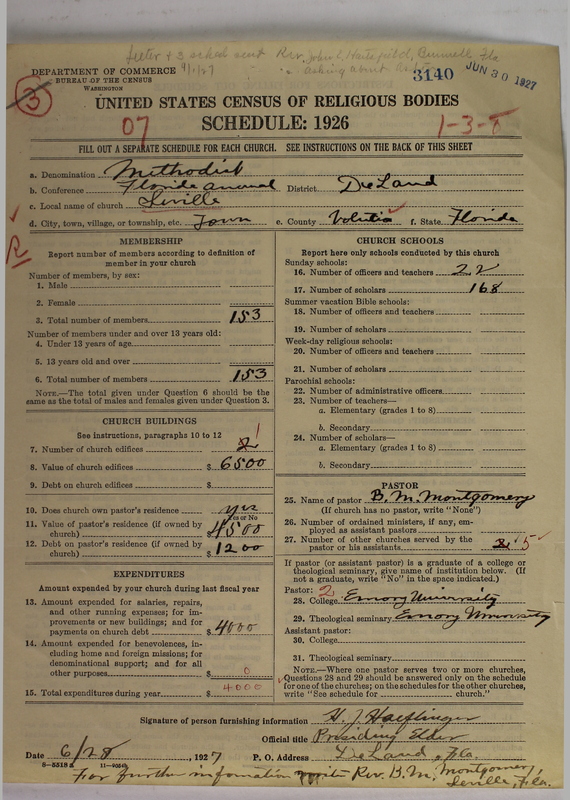 Letter + 3 sched sent Rev. John C. Bunnell, Fla
4/1/27 asking about
DEPARTMENT OF COMMERCE
BUREAU OF THE CENSUS
WASHINGTON
3140 JUN 30 1927
3
UNITED STATES CENSUS OF RELIGIOUS BODIES
07 SCHEDULE: 1926 1-3-8
FILL OUT A SEPARATE SCHEDULE FOR EACH CHURCH. SEE INSTRUCTIONS ON THE BACK OF THIS SHEET
a. Denomination Methodist
b. Conference Florida annual District DeLand
c. Local name of church Seville
d. City, town, village, or township, etc. Town e. County Volusia f. State Florida
R
MEMBERSHIP
Report number of members according to definition of
member in your church
Number of members, by sex:
1. Male
2. Female
3. Total number of members 153
Number of members under and over 13 years old:
4. Under 13 years of age
5. 13 years old and over
6. Total number of members 153
NOTE.—The total given under Question 6 should be the
same as the total of males and females given under Question 3.
CHURCH BUILDINGS
See instructions, paragraphs 10 to 12
7. Number of church edifices 2 1
8. Value of church edifices $ 6500
9. Debt on church edifices $
10. Does church own pastor's residence yes
Yes or No
11. Value of pastor's residence (if owned by
church) $ 4500
12. Debt on pastor's residence (if owned by
church) $ 1200
EXPENDITURES
Amount expended by your church during last fiscal year
13. Amount expended for salaries, repairs,
and other running expenses; for im-
provements or new buildings; and for
payments on church debt $ 4000
14. Amount expended for benevolences, in-
cluding home and foreign missions; for
denominational support; and for all
other purposes $ 0
15. Total expenditures during year $ 4000
CHURCH SCHOOLS
Report here only schools conducted by this church
Sunday schools:
16. Number of officers and teachers 22
17. Number of scholars 168
Summer vacation Bible schools:
18. Number of officers and teachers
19. Number of scholars
Week-day religious schools:
20. Number of officers and teachers
21. Number of scholars
Parochial schools:
22. Number of administrative officers
23. Number of teachers—
a. Elementary (grades 1 to 8)
b. Secondary
24. Number of scholars—
a. Elementary (grades 1 to 8)
b. Secondary
PASTOR
25. Name of pastor B. M. Montgomery
(If church has no pastor, write "None")
26. Number of ordained ministers, if any, em-
ployed as assistant pastors
27. Number of other churches served by the
pastor or his assistants 2 5
If pastor (or assistant pastor) is a graduate of a college or
theological seminary, give name of institution below. (If
not a graduate, write "No" in the space indicated.)
Pastor: 2
28. College Emory University
29. Theological seminary Emory University
Assistant pastor:
30. College
31. Theological seminary
NOTE.—Where one pastor serves two or more churches,
Questions 28 and 29 should be answered only on the schedule
for one of the churches; on the schedules for the other churches,
write "See schedule for church."
Signature of person furnishing information H. J. Haeflinger
Official title Presiding Elder
Date 6/28, 1927 P. O. Address DeLand, Fla
8—5518a
For further information write Rev. B. M. Montgomery,
Seville, Fla.